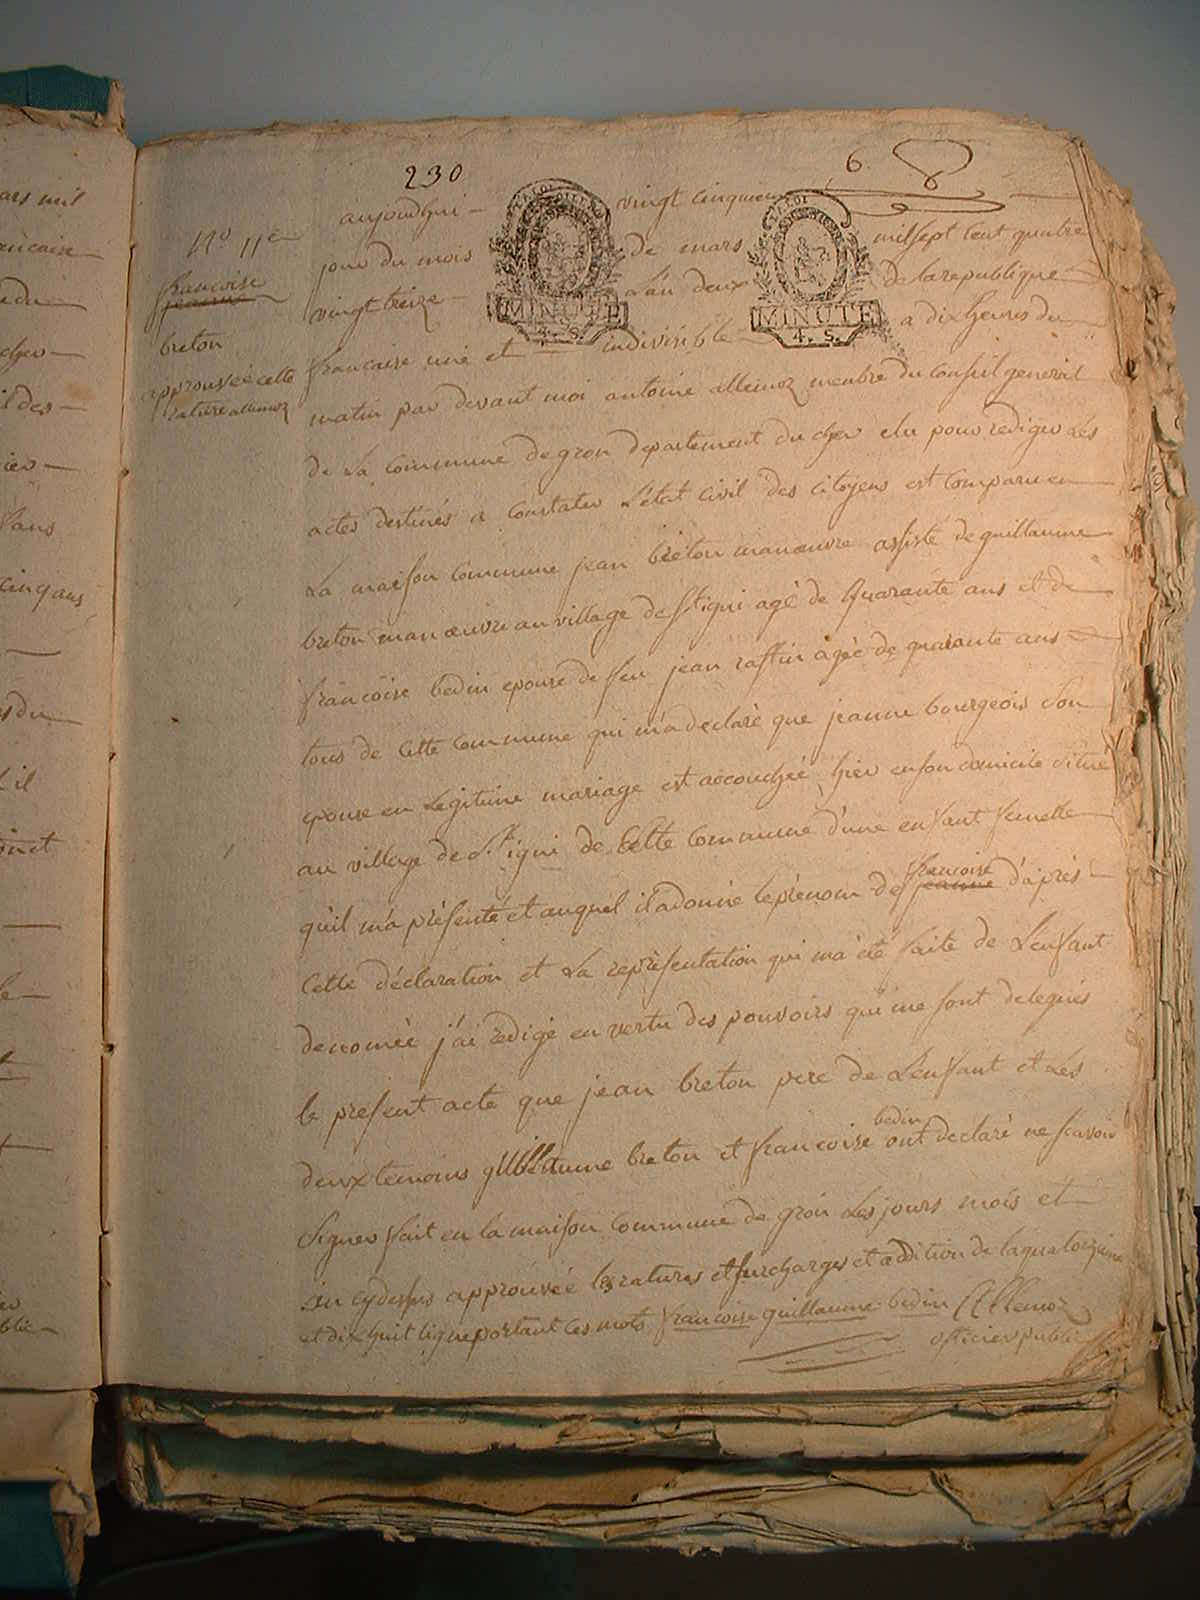 230
6
N° 11e
françoise
jeanne
breton
approuvée cette
rature allemoz
aujourdhui vingt cinquieme
jour du mois de mars mil sept cent quatre
vingt treize L'an deux de la republique
francaise une et indivisible a dix heures du
LA LOI
LA LOI
MINUTE
4. S.
MINUTE
4. S.
matin par devant moi antoine allemoz membre du Conseil general
de La Commune de gron departement du cher elu pour rediger Les
actes destinés a Constater L'état Civil des Citoyens est Comparu en
La maison Commune jean breton manœuvre assisté de guillaume
breton manœuvre au village de St igni agé de Quarante ans et de
francoise bedin epouse de feu jean raffin agée de quarante ans
tous de Cette Commune qui m'a declaré que jeanne bourgeois son
epouse en Legitime mariage est accouchée hier en son domicile situé
au village de St igni de Cette Commune d'une enfant femelle
qu'il m'a présenté et auquel il a donné le prénom de jeanne françoise d'après
Cette déclaration et La représentation qui m'a été faite de L'enfant
denomée j'ai redigé en vertu des pouvoirs qui me sont delegués
le présent acte que jean breton pere de L'enfant et Les
deux temoins guillaume breton et francoise bedin ont declaré ne scavoir
signer fait en la maison Commune de gron Les jours mois et
an cy dessus approuvée les ratures et surcharges et addition de la quatorzieme
et dix huit ligne portant ces mots francoise guillaume bedin Allemoz
officier public
ars mil
ancaise
cher
il des
ier
sans
cinq ans
il
blic